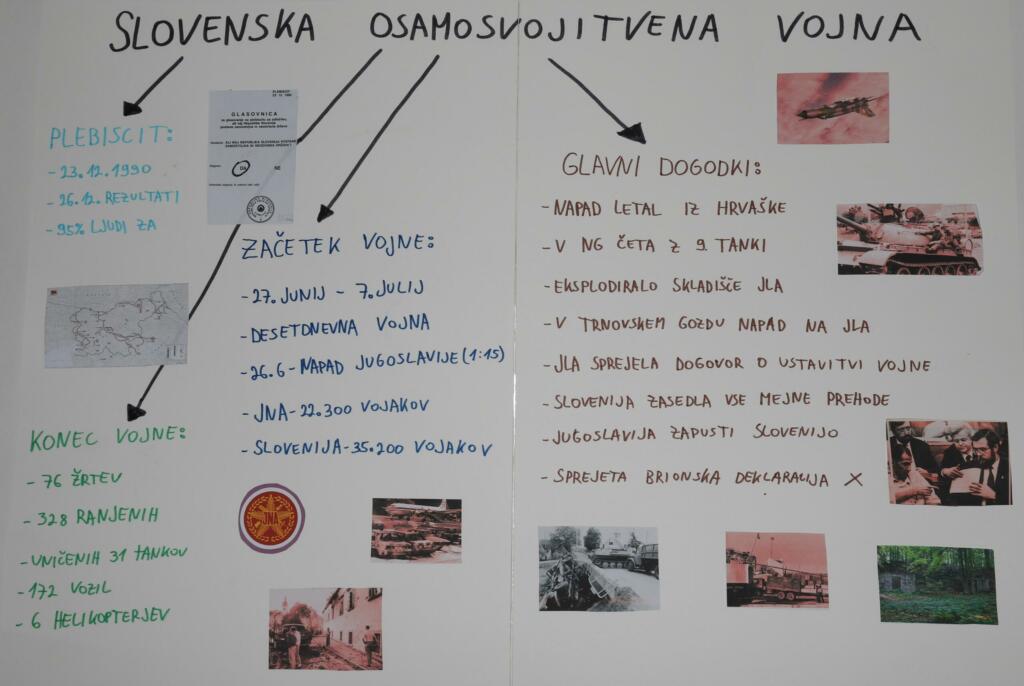 SLOVENSKA OSAMOSVOJITVENA VOJNA
PLEBISCIT:
- 23.12.1990
- 26.12. REZULTATI
- 95% LJUDI ZA
PLEBISCIT
GLASOVNICA
DA NE
ZAČETEK VOJNE:
- 27. JUNIJ - 7. JULIJ
- DESETDNEVNA VOJNA
- 26.6 - NAPAD JUGOSLAVIJE (1:15)
- JNA - 22.300 VOJAKOV
- SLOVENIJA - 35.200 VOJAKOV
JNA
KONEC VOJNE:
- 76 ŽRTEV
- 328 RANJENIH
- UNIČENIH 31 TANKOV
- 172 VOZIL
- 6 HELIKOPTERJEV
GLAVNI DOGODKI:
- NAPAD LETAL IZ HRVAŠKE
- V NG ČETA Z 9 TANKI
- EKSPLODIRALO SKLADIŠČE JLA
- V TRNOVSKEM GOZDU NAPAD NA JLA
- JLA SPREJELA DOGOVOR O USTAVITVI VOJNE
- SLOVENIJA ZASEDLA VSE MEJNE PREHODE
- JUGOSLAVIJA ZAPUSTI SLOVENIJO
- SPREJETA BRIONSKA DEKLARACIJA X